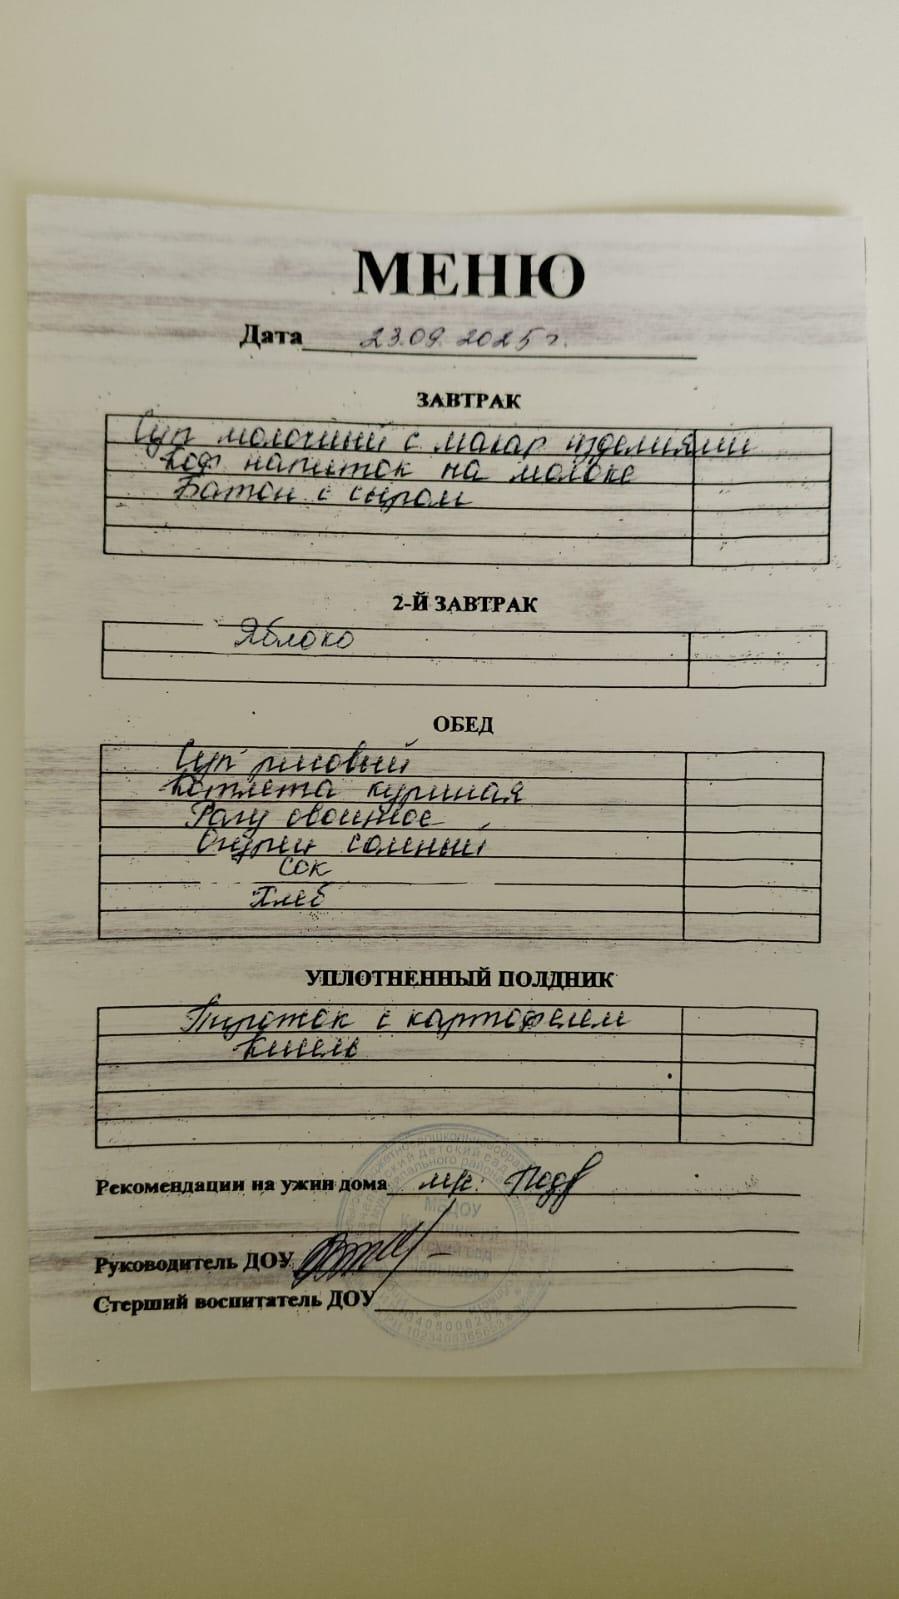 МЕНЮ
Дата 23.09.2025 г.
ЗАВТРАК
Суп молочный с макар изделиями
Коф напиток на молоке
Батон с сыром
2-Й ЗАВТРАК
Яблоко
ОБЕД
Суп рисовый
Котлета куриная
Рагу овощное
Огурец соленый
Сок
Хлеб
УПЛОТНЕННЫЙ ПОЛДНИК
Пирожок с картофелем
Кисель
Рекомендации на ужин дома
Руководитель ДОУ
Стерший воспитатель ДОУ
МБДОУ